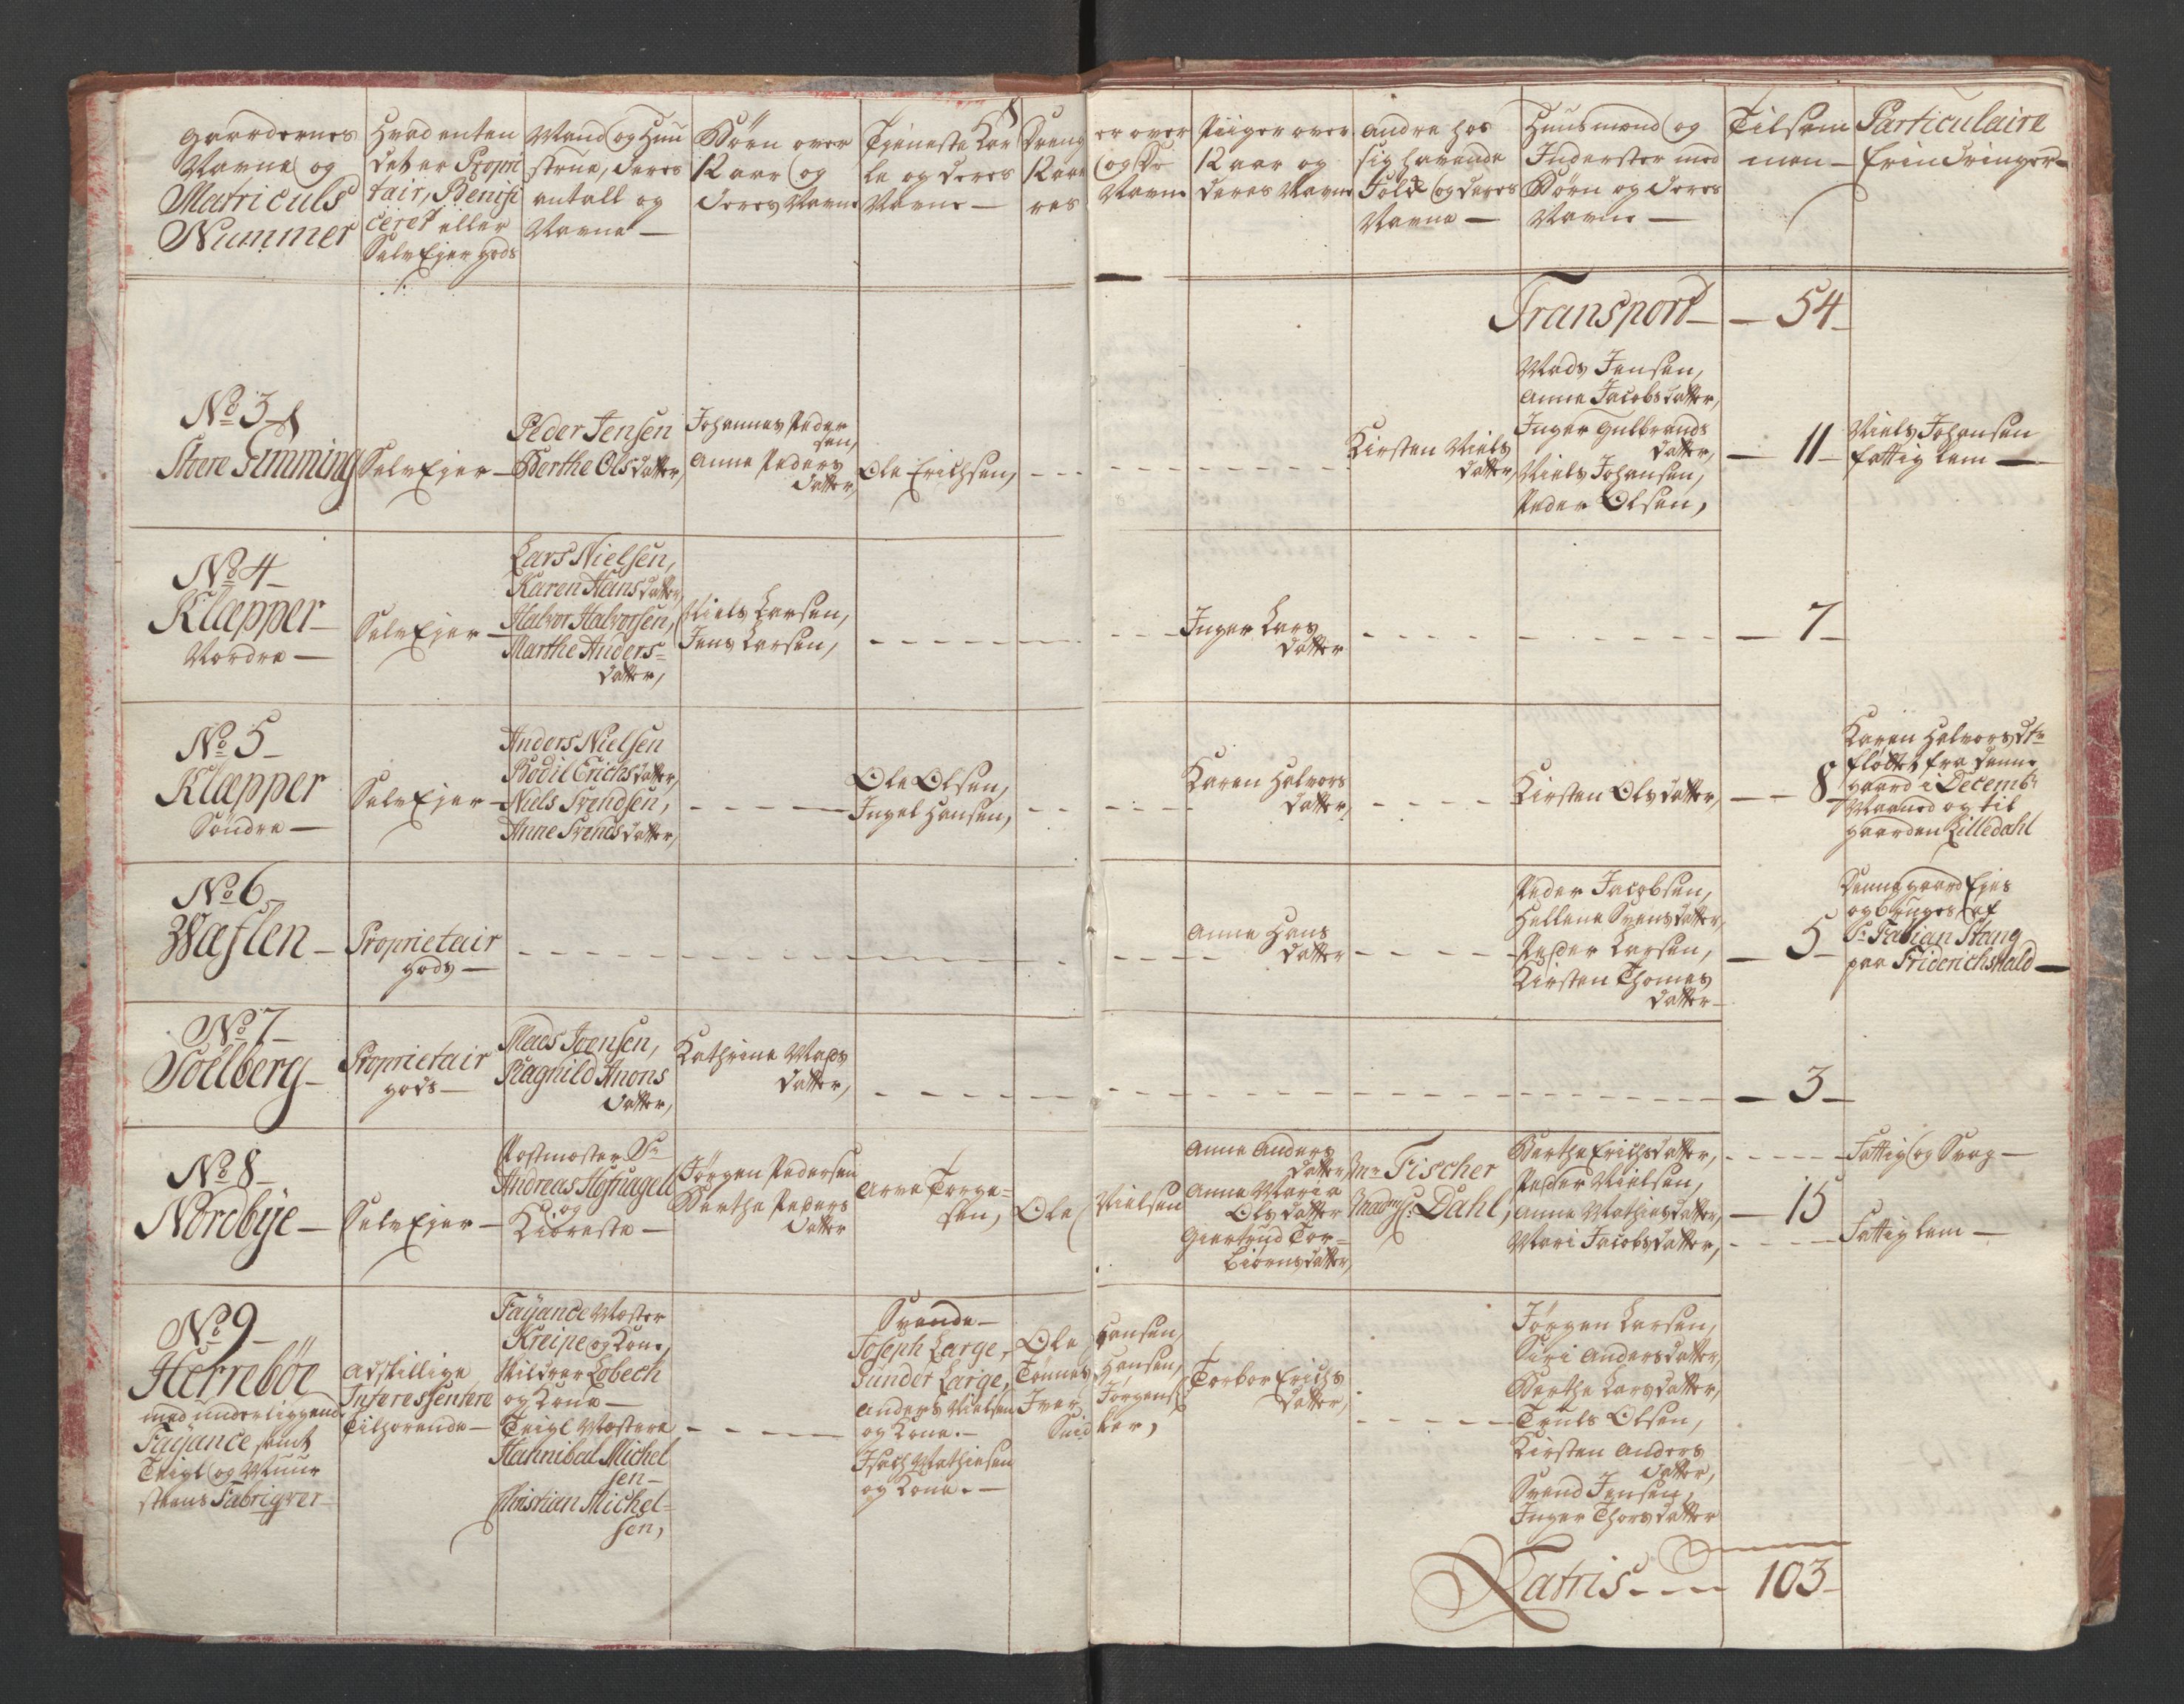 Gaardernes
Navne og
Matriculs
Nummer
Hvad enten
det er Propri
tair, Benifi
ceret eller
SelvEjer gods
Mand og Huu
strue, deres
antall og
Navne —
Børn over
12 aar og
deres Navne
Tjeneste Kar
le og deres
Navne —
Dreng
12 aar
res
er over
og De
Navne
Piiger over
12 aar og
deres Navne
Andre hos
sig havende
Folck og deres
Navne —
Huusmænd og
Inderster med
Børn og deres
Navne —
Tilsam
men —
Particulaire
Erindringer
Transport — 54
No 3
Store Timming
SelvEjer —
Peder Jensen
Berthe Olsdatter,
Johannes Peder
sen,
Anne Peders
datter,
Ole Erichsen,
Kirsten Niels
datter,
Mads Jensen,
Anne Jacobsdatter,
Inger Gulbrands
datter,
Niels Johansen,
Peder Olsen,
— 11 —
Niels Johansen
fattig lem —
No 4
Klæpper
Nordre —
SelvEjer —
Lars Nielsen,
Karen Hansdatter,
Halvor Halvorsen,
Marthe Anders-
datter,
Niels Larsen,
Jens Larsen,
Inger Lars
datter
— 7 —
No 5
Klæpper
Søndre —
SelvEjer —
Anders Nielsen
Bodil Erichsdatter,
Niels Svendsen,
Anne Svendsdatter,
Ole Olsen,
Ingel Hansen,
Karen Halvors
datter,
Kirsten Olsdatter,
— 8 —
Karen Halvorsdtr
fløttet fra denne
gaard i Decembr
Maaned og til
gaarden Lilledahl
No 6
Wæslen —
Proprietair
gods —
Anne Hans
datter
Peder Jacobsen,
Hellene Svensdatter,
Peder Larsen,
Kirsten Thomes
datter —
— 5 —
Denne gaard Ejes
og bruges af
Sr Fabian Stang
paa Friderichshald —
No 7
Solberg —
Proprietair
gods —
Mads Joensen,
Ragnild Anons
datter,
Kathrine Mads
datter,
— 3 —
No 8
Nordbye —
SelvEjer —
Postmester Sr
Andreas Hofnagell
og
Kiereste —
Jørgen Pedersen
Berthe Peders
datter
Arve Torge-
sen,
Ole Nielsen
Anne Anders
datter,
Anne Maria
Olsdatter
Giertrud Tor-
biørnsdatter,
Mr Fischer
Mad. Dahl,
Berthe Erichsdatter,
Peder Nielsen,
Anne Mathisdatter,
Mari Jacobsdatter,
— 15
Fattig og Svag —
Fattig lem —
No 9
Herrebøe
med underliggende
Fayance samt
Teigl og Muur
steens Fabriqver
Adskillige
Interessentere
Tilhørende —
Fayance Mester
Kreipe og Kone,
Bildrer Lobech
og Kone —
Teigl Mestere
Hannibal Michel
sen —
Christian Michel-
sen,
Svende —
Joseph Large,
Gunder Large,
Anders Nielsen
og Kone. —
Isach Mathiesen
og Kone. —
Ole Hansen,
Tønnes Hansen,
Iver Jørgens
Torbor Erichs
datter,
Jørgen Larsen,
Siri Andersdatter,
Berthe Larsdatter,
Truls Olsen,
Kirsten Anders
datter,
Svend Jensen,
Inger Thorsdatter
Latris — 103 —